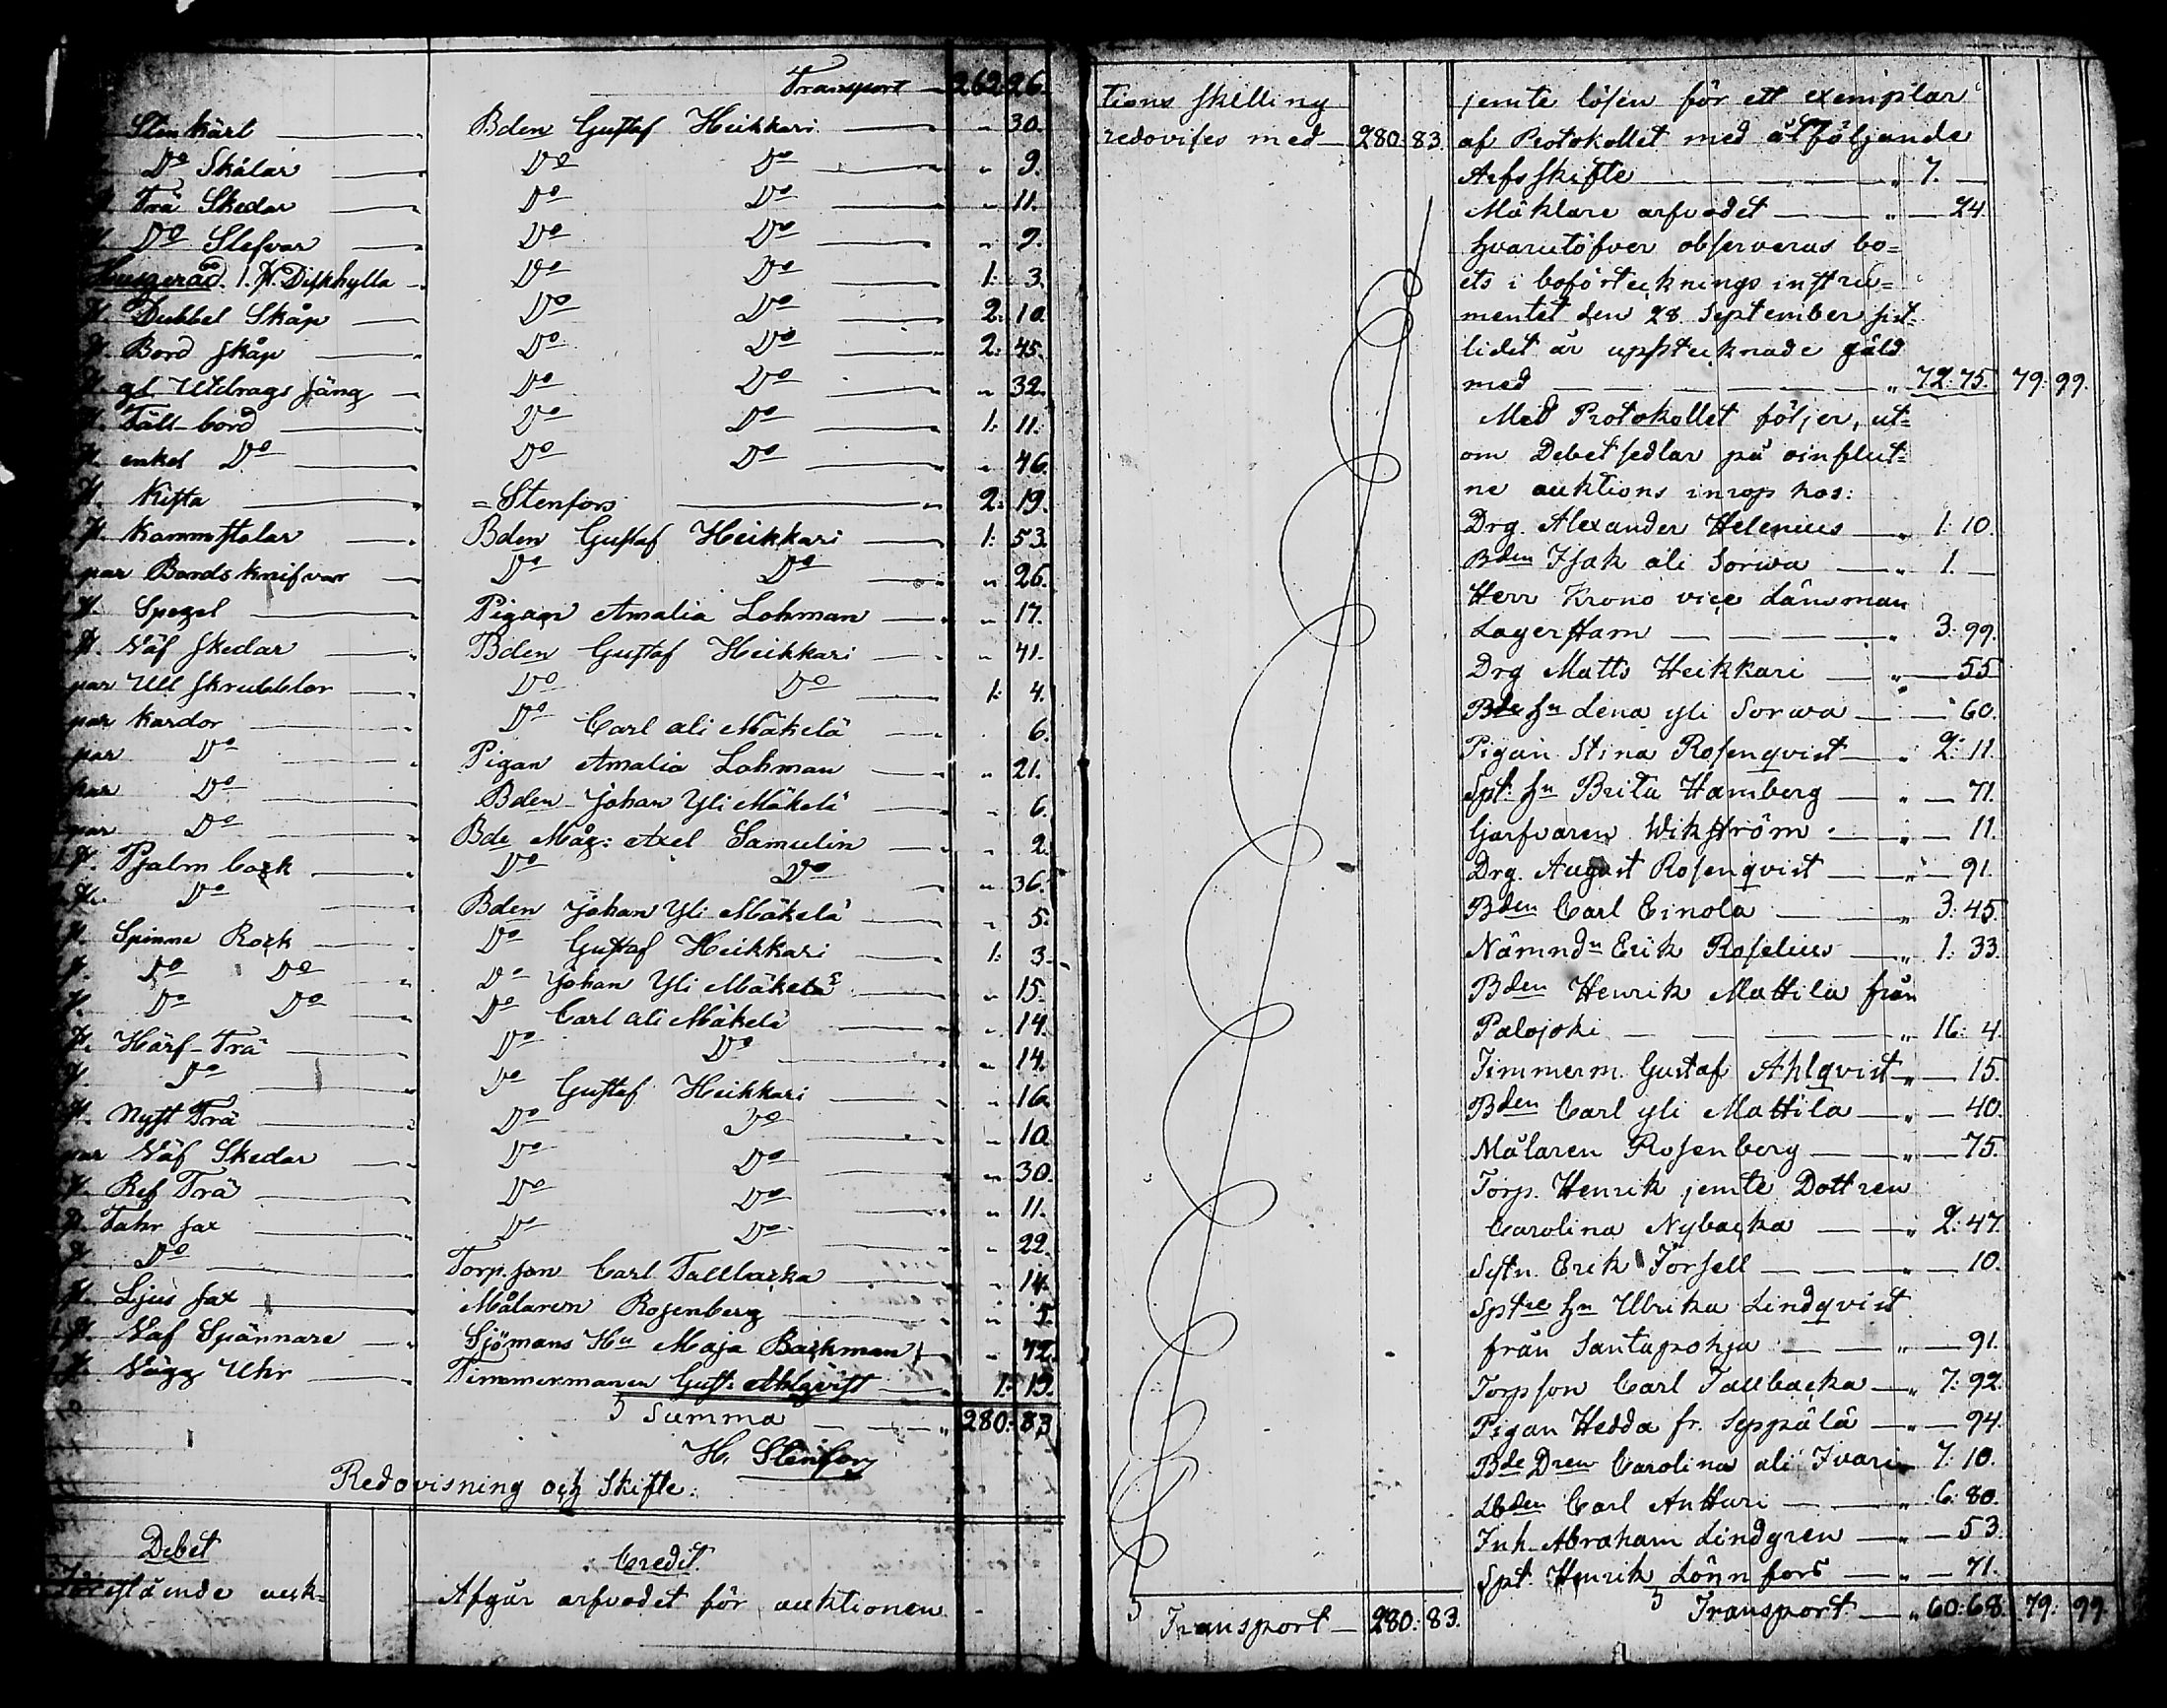 Transport — 262: 26.
Stenkärl — Bden Gustaf Heikkari — " 30.
Do Skålar — Do Do — " 9.
Trä Skedar — Do Do — " 11.
Do Slefvar — Do Do — " 9.
Husgeråd. 1. st. Diskhylla — Do Do — 1: 3.
st. Dubbel Skåp — Do Do — 2: 10.
st. Bord skåp — Do Do — 2: 45.
st. gl. Utdrags säng — Do Do — " 32.
st. Fäll-bord — Do Do — 1: 11.
st. enkel Do — Do Do — " 46.
st. Kista — = Stenfors — 2: 19.
st. Kammstolar — Bden Gustaf Heikkari — 1: 53.
par Bordsknifvar — Do Do — " 26.
st. Spegel — Pigan Amalia Lohman — " 17.
st. Väf skedar — Bden Gustaf Heikkari — " 41.
par Ull skrubblor — Do Do — 1: 4.
par Kardor — Do Carl ali Mäkelä — 6.
par Do — Pigan Amalia Lohman — " 21.
par Do — Bden Johan Yli Mäkelä — " 6.
par Do — Bde Måg: Axel Samulin — " 2.
st. Psalm bock — Do Do — " 36.
st. Do — Bden Johan Yli Mäkelä — " 5.
st. Spinne Rock — Do Gustaf Heikkari — 1: 3.
st. Do Do — Do Johan Yli Mäkelä — " 15.
st. Do Do — Do Carl ali Mäkelä — " 14.
st. Härf-Trä — Do Do — " 14.
st. Do — Do Gustaf Heikkari — " 16.
st. Nyst Trä — Do Do — " 10.
par Väf Skedar — Do Do — " 30.
st. Ref Trä — Do Do — " 11.
st. Fahr sax — Do Do — " 22.
st. Do — Torp. son Carl Tallbacka — " 14.
st. Ljus sax — Målaren Rosenberg — " 5.
st. Väf Spännare — Sjömans Hu Maja Backman — " 42.
st. Vägg Uhr — Timmermanen Gust: Ahlqvist — 1: 19.
Summa — 280: 83
H. Stenfors
Redovisning och Skifte.
Debet
Credit.
Förestående auk=
Afgår arfvodet för auktionen
tions skilling
redovises med — 280: 83.
Transport — 280: 83.
jemte lösen för ett exemplar
af Protokollet med åtföljande
Arfsskifte — " 7. —
Mäklare arfvodet — " — 24
hvarutöfver observeras bo=
ets i boförtecknings instru=
mentet den 28 September sist=
lidet år upptecknade gäld
med — " 72: 75. 79: 99.
Med Protokollet följer, ut=
om Debetsedlar på oinflut=
ne auktions inrop hos:
Drg. Alexander Helenius — " 1: 10.
Bden Isak ali Sorwa — " 1. —
Herr Krono vice Länsman
Lagerstam — " 3: 99.
Drg Matts Heikkari — " — 55
Bde hu Lena yli Sorwa — " — 60.
Pigan Stina Rosenqvist — " 2: 11.
Spt: hu Brita Hamberg — " — 71.
Garfvaren Wikström — " — 11.
Drg. August Rosenqvist — " — 91.
Bden Carl Einola — " 3: 45.
Nämndn Erik Roselius — " 1: 33.
Bden Henrik Mattila från
Palojoki — " 16: 4.
Timmerm. Gustaf Ahlqvist — " — 15.
Bden Carl yli Mattila — " — 40.
Målaren Rosenberg — " — 75.
Torp. Henrik jemte Dottren
Carolina Nybacka — " 2: 47.
Sytn. Erik Forsell — " — 10.
Sptre hu Ulrika Lindqvist
från Santapohja — " — 91.
Torpson Carl Tallbacka — " 7: 92.
Pigan Hedda fr. Seppälä — " — 94.
Bde Dren Carolina ali Ivari — 7: 10.
Lbden Carl Antturi — " 6: 80.
Inh. Abraham Lindgren — " — 53.
Spt. Henrik Lönnfors — " — 71.
Transport — " 60: 68. 79: 99.